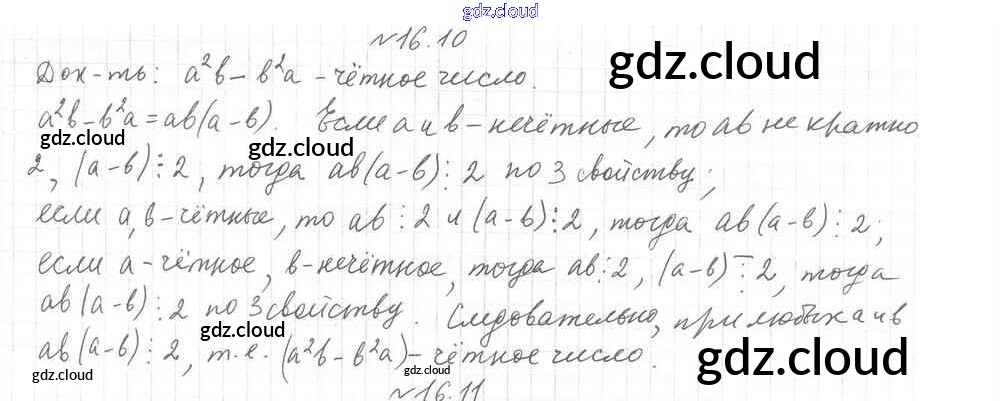 gdz.cloud
№16.10
gdz.cloud
Док-ть: a²b - b²a - чётное число.
a²b - b²a = ab(a-b). Если a и b - нечётные, то ab не кратно
gdz.cloud
gdz.cloud
2, (a-b)⋮2, тогда ab(a-b)⋮2 по 3 свойству;
если a, b - чётные, то ab⋮2 и (a-b)⋮2, тогда ab(a-b)⋮2;
если a - чётное, b - нечётное, тогда ab⋮2, (a-b)⋮̅2, тогда
ab(a-b)⋮2 по 3 свойству. Следовательно, при любых a и b
gdz.cloud
gdz.cloud
ab(a-b)⋮2, т.е. (a²b - b²a) - чётное число.
gdz.cloud
gdz.cloud
№16.11